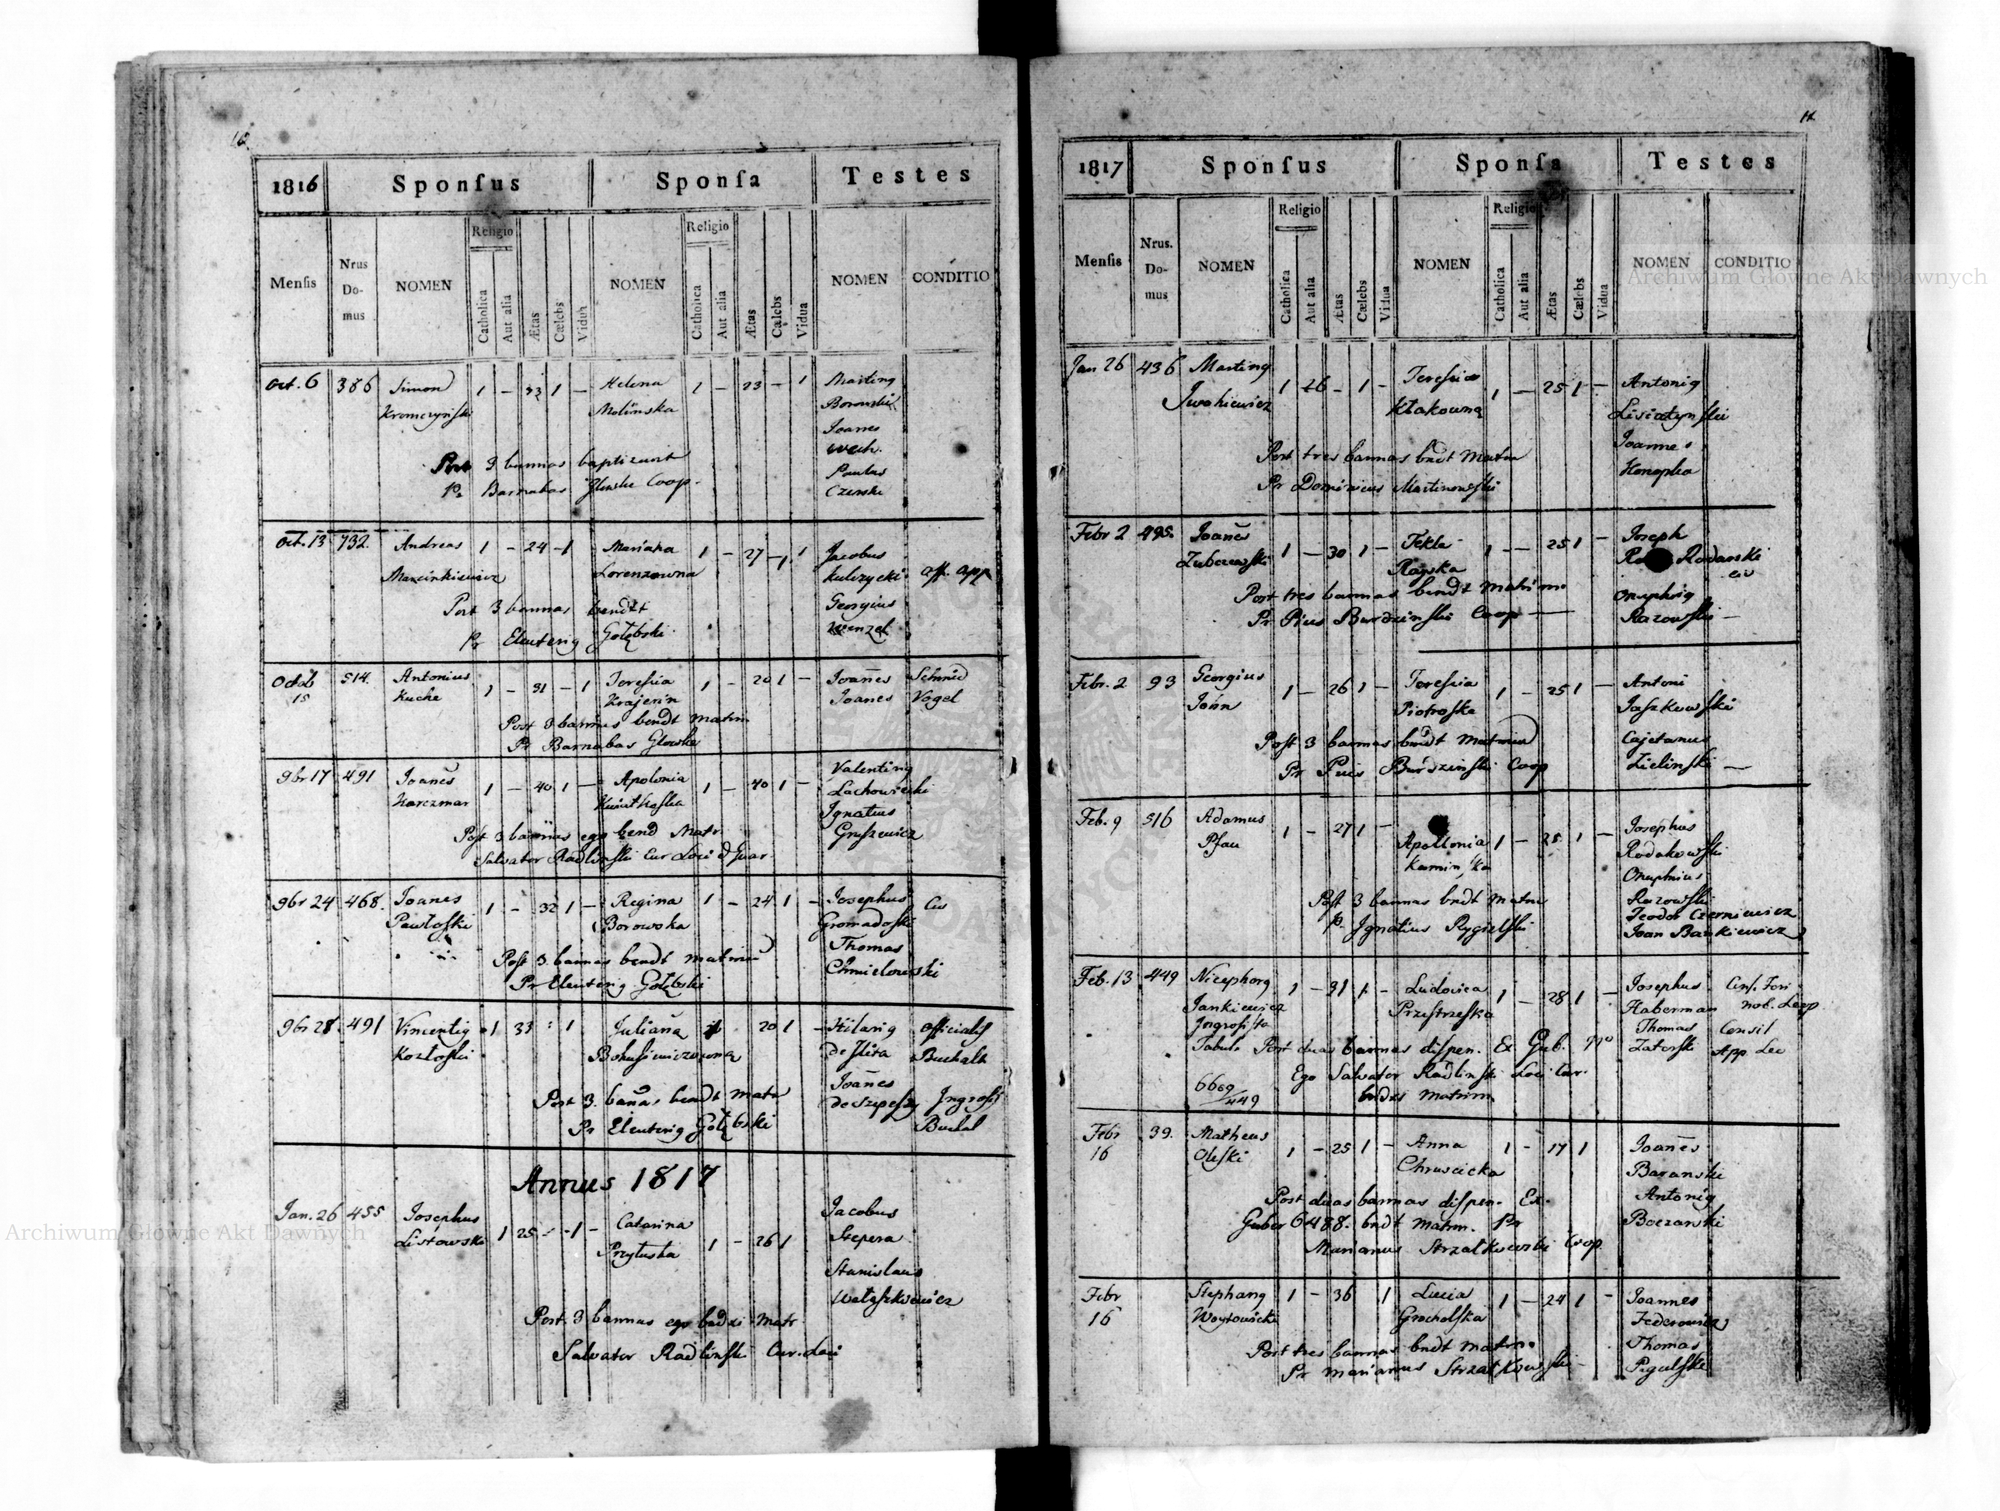 10.
1816 Sponſus Sponſa Testes
Menſis Nrus Do- mus NOMEN Religio Catholica Aut alia Ætas Cælebs Viduâ NOMEN Religio Catholica Aut alia Ætas Cælebs Vidua NOMEN CONDITIO
Oct. 6 386 Simon 1 – 1 – Helena 1 – 23 – 1 Marting
Molinska Borowski
Joannes
Post 3 bannas
Pr Barnabas Coop. Paulus
Czerski
Oct. 13 732. Andreas 1 – 24 – 1 Mariana 1 – 27 – 1 Jacobus
Marcinkiewicz Lorenzowna Kulczycki. aff. app
Post 3 bannas bendt Georgius
Pr Eleuterig Gołębski. Wenzel
Octob 514. Antonius 1 – 31 – 1 Teresia 1 – 20 1 – Joanes Schmid
15 Kuche Krajerin Joanes Vogel
Post 3 bannas bendt Matrim
Pr Barnabas Glowski
9br 17 491 Joanes 1 – 40 1 – Apolonia 1 – 40 1 – Valenting
Karczmar Kwiatkoska Lachowiecki
Ignatius
Post 3 bannas ego bend Matr. Gruszewicz
Salvator Radlinſki Cur Loci & Guar.
9br 24 468. Joanes 1 – 32 1 – Regina 1 – 24 1 – Josephus Civ
Pawloſki Borowska Gromadoſki
Thomas
Post 3 bannas bendt matrim Chmielowski
Pr Eleuterig Gołębski
9br 28. 491 Vincentig 1 33 : 1 Juliana 20 1 – Hilarig Officialiſ
Kozloſki Bohuſiewiczowna de Buchalt
Joanes
Post 3. banas bendt matr de Ingroſſ
Pr Eleuterig Gołębski Buchal
Annus 1817
Jan. 26 455 Josephus 1 25 – – 1 – Catarina 1 – 26 1 Jacobus
Listowski Przyłuska Stepera
Stanislaus
Post. 3 bannas ego bedxi Matr
Salvator Radlinſki Cur. Loci
11.
1817 Sponſus Sponſa Testes
Menſis Nrus. Do- mus NOMEN Religio Catholica Aut alia Ætas Cælebs Vidua NOMEN Religio Catholica Aut alia Ætas Cælebs Vidua NOMEN CONDITIO
Jan 26 436 Marting 1 26 – 1 – Teresia 1 – 25 1 – Antonig
Iwakiewicz Kłakowna
Joannes
Post tres bannas bndt Matrm Konopka
Pr Dominicus Martinowſki
Febr 2 495. Joanes 1 – 30 1 – Tekla 1 – – 25 1 – Joseph
Zubrzewski Rayska Rodaoski
civ
Post tres bannas bendt Matrimo Onuphrig
Pr Pius Burdzinſki Coop – Razowſki –
Febr. 2 93 Georgius 1 – 26 1 – Teresia 1 – 25 1 – Antoni
John Piotroska Jaszkowſki
Post 3 bannas bendt Matrim Cajetanus
Pr Puis Burdzinſki Coop Zielinſki –
Feb. 9 516 Adamus 1 – 27 1 – Apollonia 1 – 25 1 – Josephus
Pfau Rodakowſki
Onuphrius
Post 3 bannas bndt Matrm Razowſki
Pr Ignatius Rygielſki Teodor Czerniewicz
Joan Bankiewicz
Feb. 13 449 Nicephorg 1 – 31 1 – Ludovica 1 – 28 1 – Josephus
Jankiewicz Przeſtrzeſka Haberman nob. Leop
Ingroſiſta Thomas Consil
Tabul. Post duas bannas diſpen. Ex Gub. Nro Zatorſki App Leo
Ego Salvator Radlinſki Loci Car.
6669/449 bndxi Matrim
Febr 39. Matheus 1 – 25 1 – Anna 1 – 17 1 Joanes
16 Olſki Chruscicka Baranski
Post duas bannas diſpen. Ex. Antonig
Guber 6488. bndt Matrm. Pr Boczarski
Marianus Strzałkowski Coop
Febr Stephang 1 – 36 1 Lucia 1 – 24 1 – Joannes
16 Woytowicki Grocholſka Federowicz
Post tres bannas bndt Matrim Thomas
Pr Marianus Strzałkowſki – Pigulſki
Archiwum Główne Akt Dawnych
Archiwum Główne Akt Dawnych